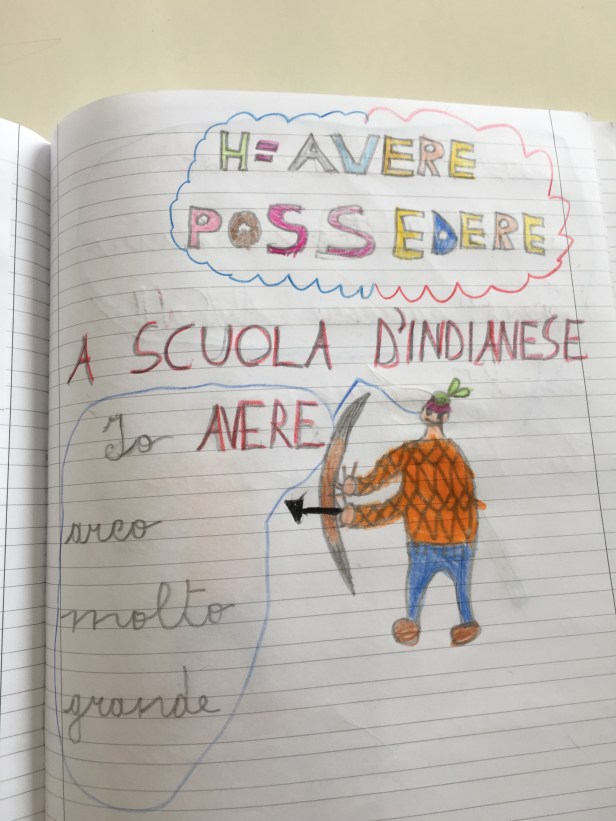 H= AVERE
POSSEDERE
A SCUOLA D'INDIANESE
Io AVERE
arco
molto
grande